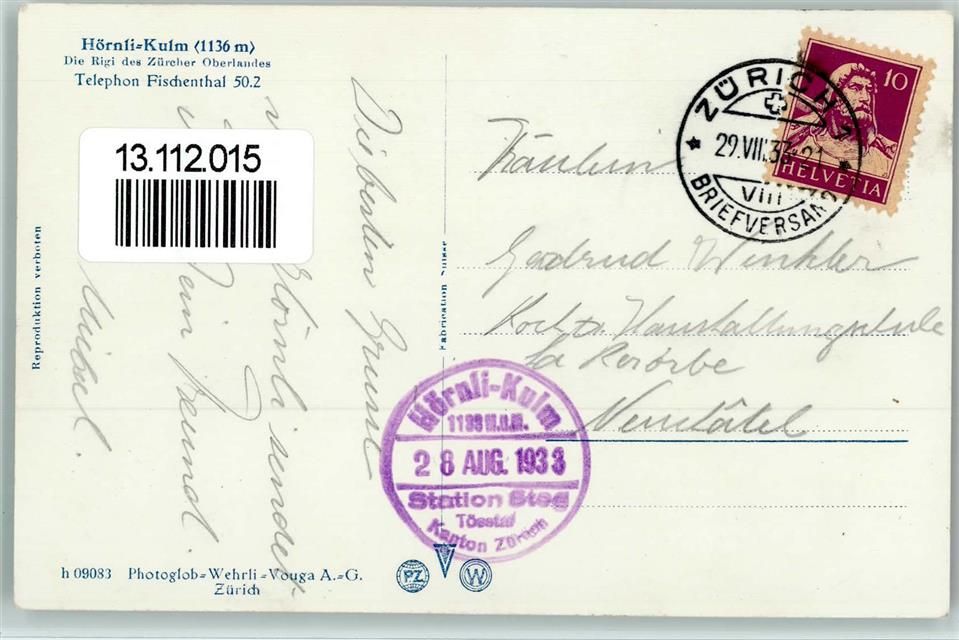 Hörnli-Kulm (1136 m)
Die Rigi des Zürcher Oberlandes
Telephon Fischenthal 50.2
13.112.015
Reproduktion verboten
Fabrication Suisse
Gruss
Hörnli sendet
Dein Freund
10
HELVETIA
ZÜRICH 1
29.VIII.33.-21
VIII
BRIEFVERSAND
Fräulein
Winkler
Koch- & Haushaltungsschule
La
Neuchâtel
Hörnli-Kulm
1136 M.ü.M.
28 AUG. 1933
Station Steg
Tösstal
Kanton Zürich
h 09083 Photoglob-Wehrli-Vouga A.-G.
Zürich
PZ
V
W